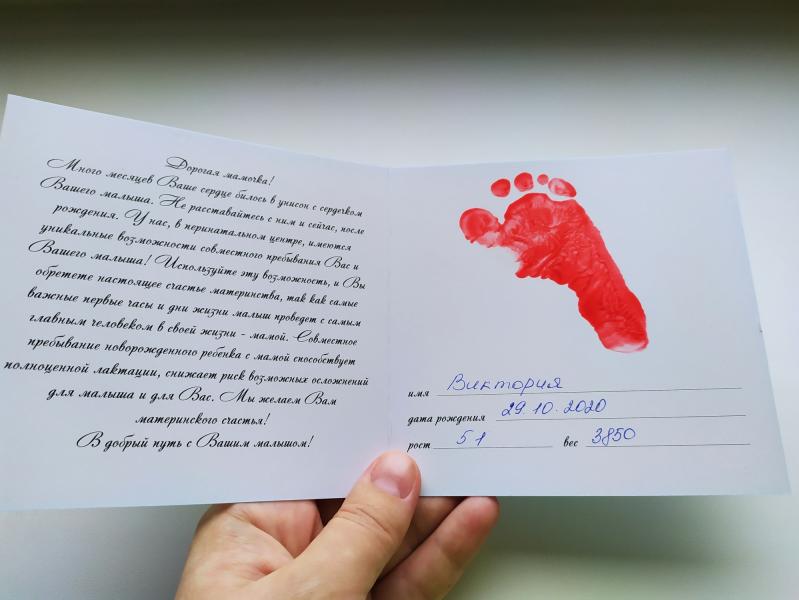 Дорогая мамочка!
Много месяцев Ваше сердце билось в унисон с сердечком
Вашего малыша. Не расставайтесь с ним и сейчас, после
рождения. У нас, в перинатальном центре, имеются
уникальные возможности совместного пребывания Вас и
Вашего малыша! Используйте эту возможность, и Вы
обретете настоящее счастье материнства, так как самые
важные первые часы и дни жизни малыш проведет с самым
главным человеком в своей жизни - мамой. Совместное
пребывание новорожденного ребенка с мамой способствует
полноценной лактации, снижает риск возможных осложнений
для малыша и для Вас. Мы желаем Вам
материнского счастья!
В добрый путь с Вашим малышом!
имя Виктория
дата рождения 29.10.2020
рост 51 вес 3850